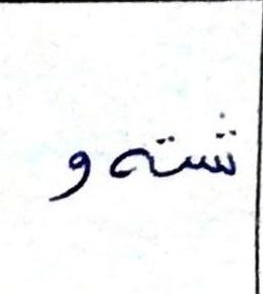 شته و